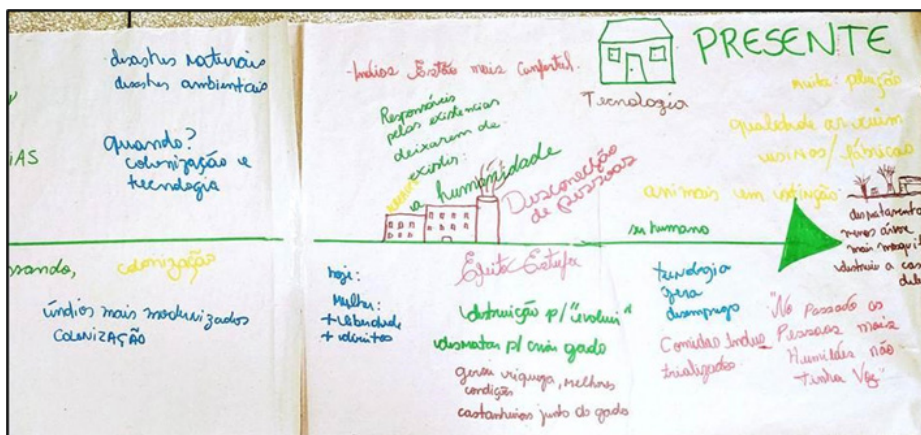 desastres naturais
desastres ambientais
quando?
colonização e
tecnologia
IAS
ssando,
colonização
índios mais modernizados
COLONIZAÇÃO
-Índios Estão mais Confortal.
Responsáveis
pelas existencias
deixarem de
existir:
a humanidade
Desconecção
de pessoas
Tecnologia
PRESENTE
muita: pluição
qualidade ar ruim
usinas/fábricas
animais em extinção
ser humano
desmatamento
menos árvore
mais mosqui
destruiu a cas
deles
hoje:
Mulher:
+ liberdade
+ direitos
Efeito Estufa
destruição p/ "evoluir"
desmatar p/ criar gado
gerou riqueza, melhores
condição
castanheiras junto do gado
tecnologia
gera
desemprego
Comidas Indus-
trializados
"No Passado as
Pessoas mais
Humildes não
tinha Voz"